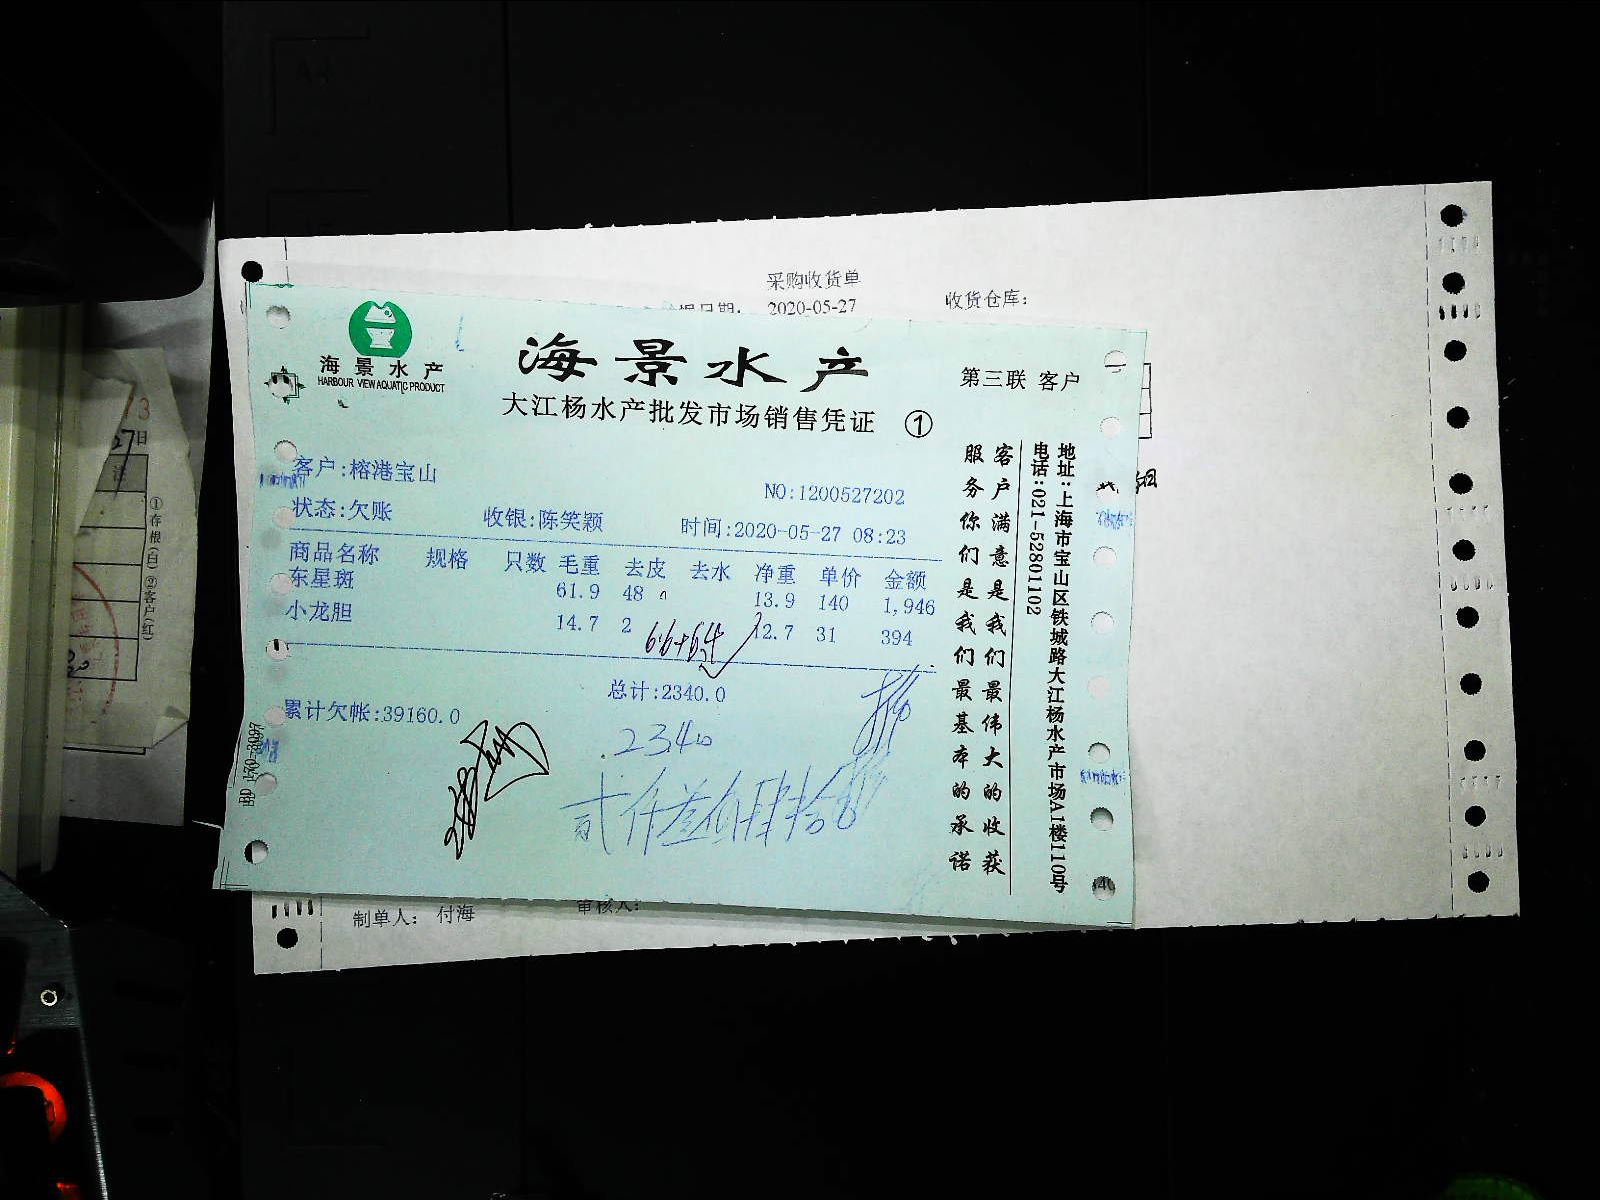 采购收货单
2020-05-27
收货仓库:
海景水产
HARBOUR VIEW AQUATIC PRODUCT
海景水产
第三联 客户
大江杨水产批发市场销售凭证 ①
客户:榕港宝山
NO:1200527202
状态:欠账 收银:陈笑颖 时间:2020-05-27 08:23
商品名称 规格 只数 毛重 去皮 去水 净重 单价 金额
东星斑 61.9 48 13.9 140 1,946
小龙胆 14.7 2 12.7 31 394
6.6+6.4
总计:2340.0
累计欠帐:39160.0
2340
贰仟叁佰肆拾
客户满意是我们最伟大的收获
服务你们是我们最基本的承诺
地址:上海市宝山区铁城路大江杨水产市场A1楼110号
电话:021-52801102
制单人: 付海
审核人:
27日
①存根(白) ②客户(红)